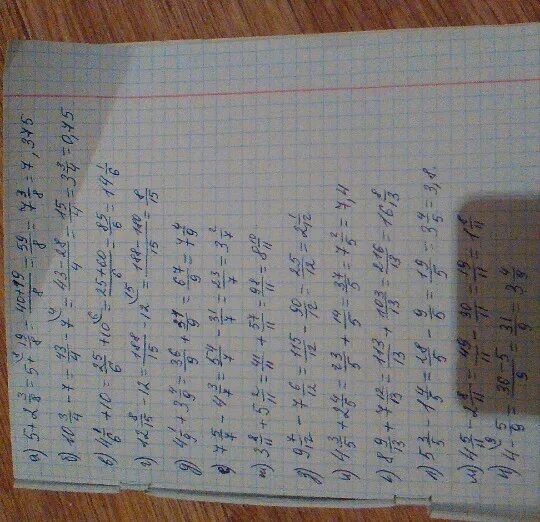 а) 5+2 3/8=5+19/8=40+19/8=59/8=7 3/8=7,375
б) 10 3/4-7=43/4-7=43-28/4=15/4=3 3/4=0,75
в) 4 1/6+10=25/6+10=25+60/6=85/6=14 1/6
г) 12 8/15-12=188/15-12=188-180/15=8/15
д) 4 1/9+3 4/9=36/9+31/9=67/9=7 4/9
е) 7 5/7-4 3/7=54/7-31/7=23/7=3 2/7
ж) 3 8/11+5 2/11=41/11+57/11=98/11=8 10/11
з) 9 7/12-7 6/12=115/12-90/12=25/12=2 1/12
и) 4 3/5+2 4/5=23/5+14/5=37/5=7 2/5=7,4
к) 8 9/13+7 12/13=113/13+103/13=216/13=16 8/13
л) 5 3/5-1 4/5=28/5-9/5=19/5=3 4/5=3,8
м) 4 5/11-2 8/11=49/11-30/11=19/11=1 8/11
н) 4-5/9=36-5/9=31/9=3 4/9